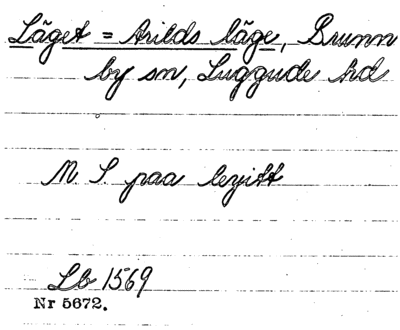 Läget = Arilds läge, Brunn
by sn, Luggude hd
M. S. paa leyitt
Lb 1569
Nr 5672.